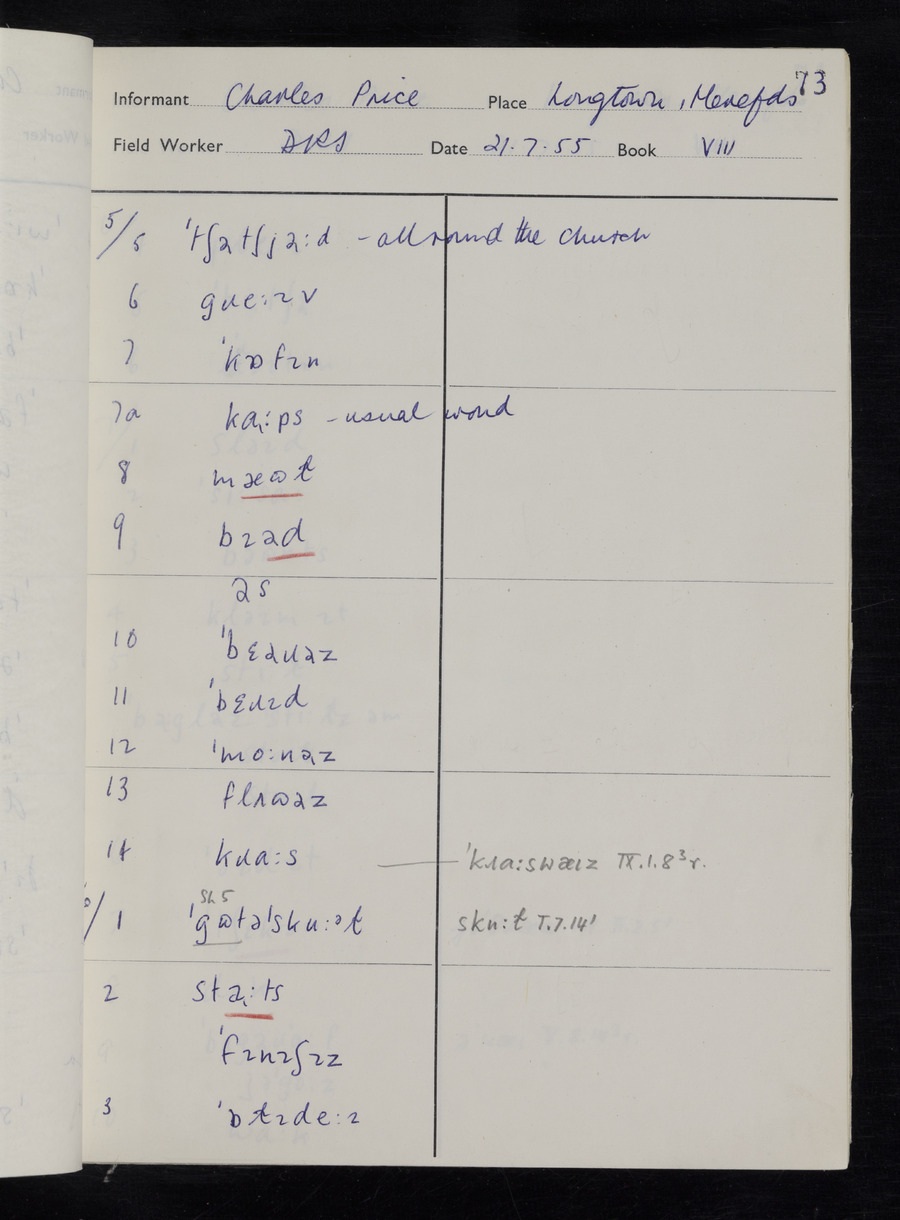 73
Informant Charles Price Place Longtown, Herefds
Field Worker DRS Date 21.7.55 Book VIII
5/5 ˈtʃətʃjəːd - all round the church
6 gɹeːɪv
7 ˈkɒfɪn
7a kɑ̣ːps - usual word
8 mæɷɫ
9 bɪəd
əs
10 ˈbɛəɹəz
11 ˈbɛɹɪd
12 ˈmoːnəz
13 flʌɷəz
14 kɹaːs ˈkɹaːswæɪz IX.1.8³r.
Sh 5
6/1 ˈgɷtəˈskuːᵊɫ skuːɫ I.7.14ˈ
2 stəːts
ˈfɪnɪʃɪz
3 ˈɒɫɪdeːɪ